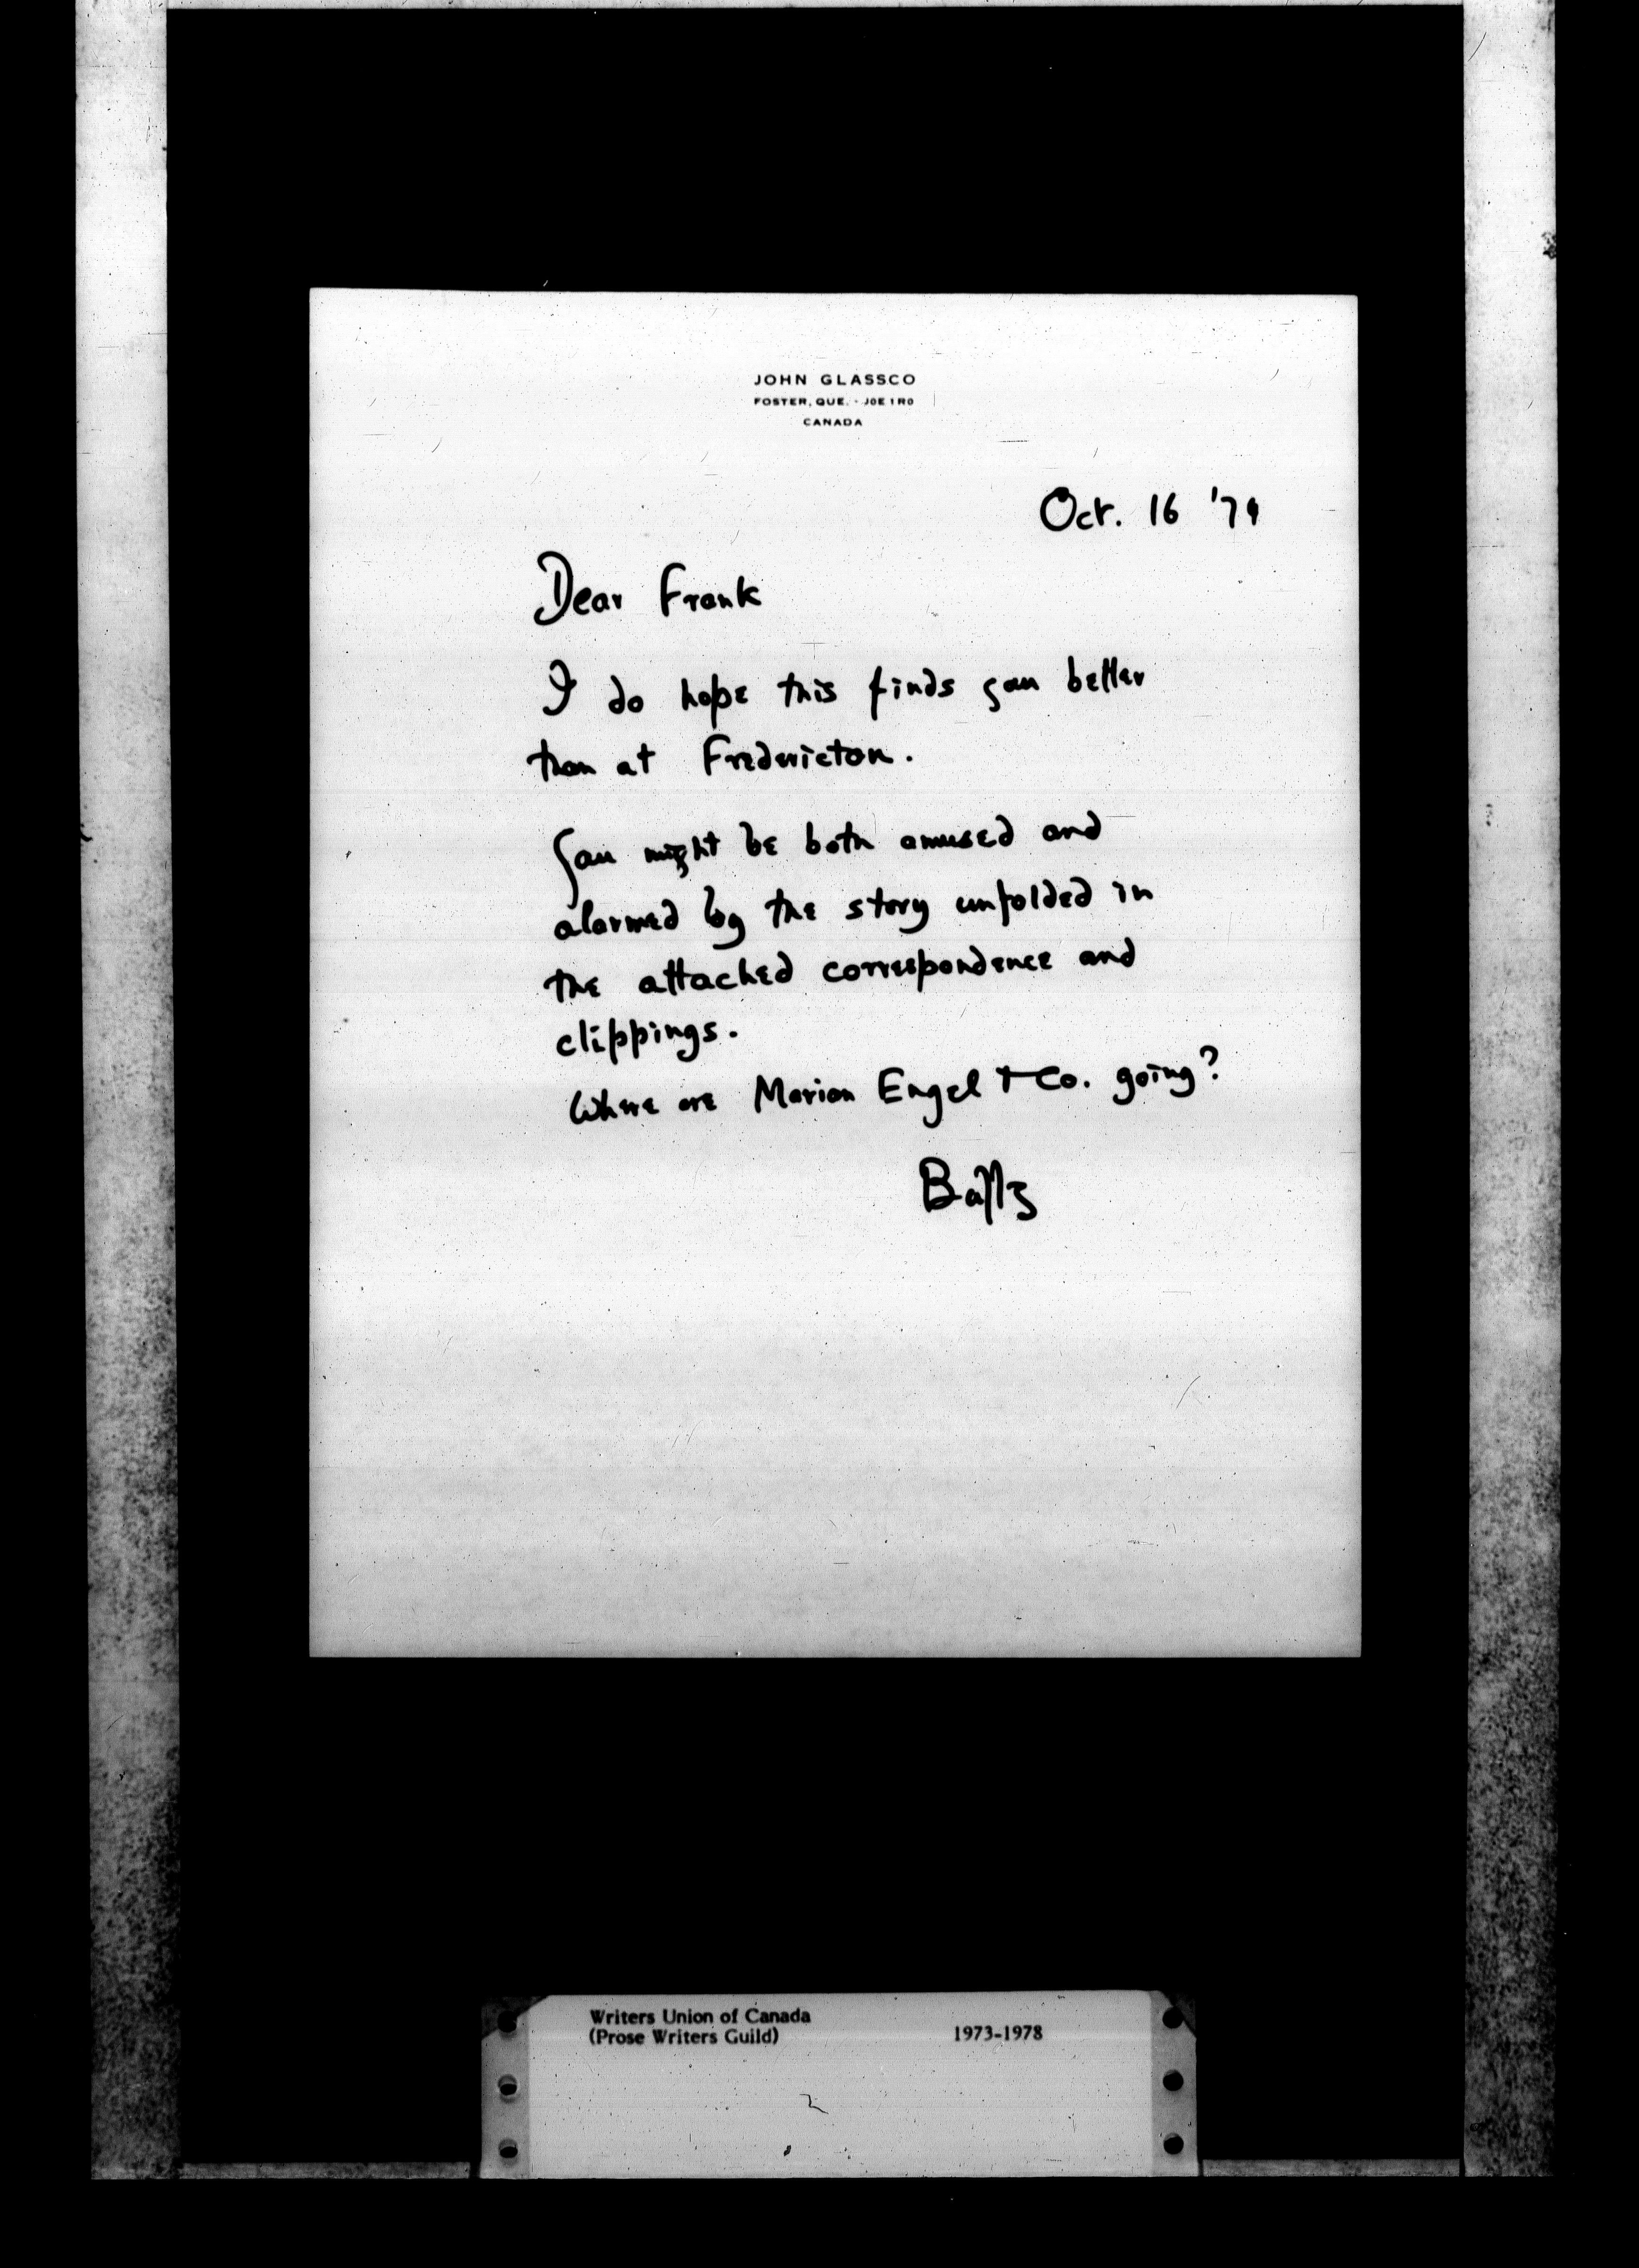 JOHN GLASSCO
FOSTER, QUE. - J0E 1R0
CANADA
Oct. 16 '74
Dear Frank
I do hope this finds you better
than at Fredericton.
You might be both amused and
alarmed by the story unfolded in
the attached correspondence and
clippings.
Where are Marian Engel & Co. going?
Buffy
Writers Union of Canada
(Prose Writers Guild) 1973-1978